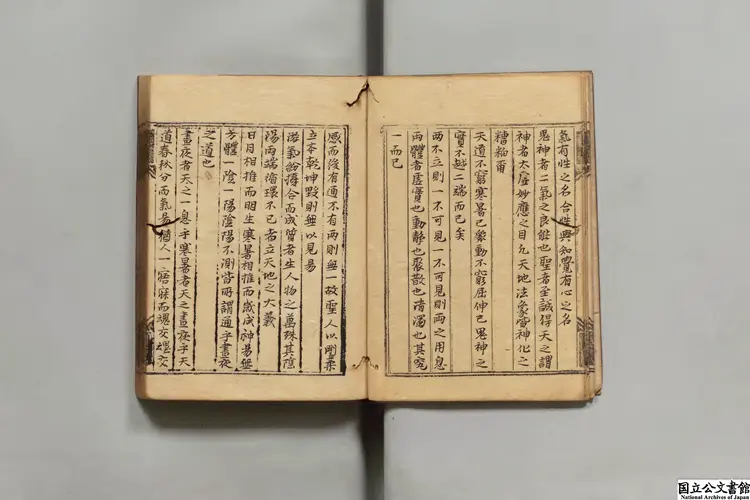 氣有性之名合性與知覺有心之名
鬼神者二氣之良能也聖者至誠得天之謂
神者太虛妙應之目凡天地法象皆神化之
糟粕爾
天道不窮寒暑已衆動不窮屈伸已鬼神之
實不越二端而已矣
兩不立則一不可見一不可見則兩之用息
兩體者虛實也動静也聚散也清濁也其究
一而已
感而後有通不有兩則無一故聖人以剛柔
立本乾坤毁則無以見易
游氣紛擾合而成質者生人物之萬殊其陰
陽兩端循環不已者立天地之大義
日月相推而明生寒暑相推而歲成神易無
方體一陰一陽陰陽不測皆所謂通乎晝夜
之道也
晝夜者天之一息乎寒暑者天之晝夜乎天
道春秋分而氣易猶人一寤寐而魂交魂交
国立公文書館
National Archives of Japan